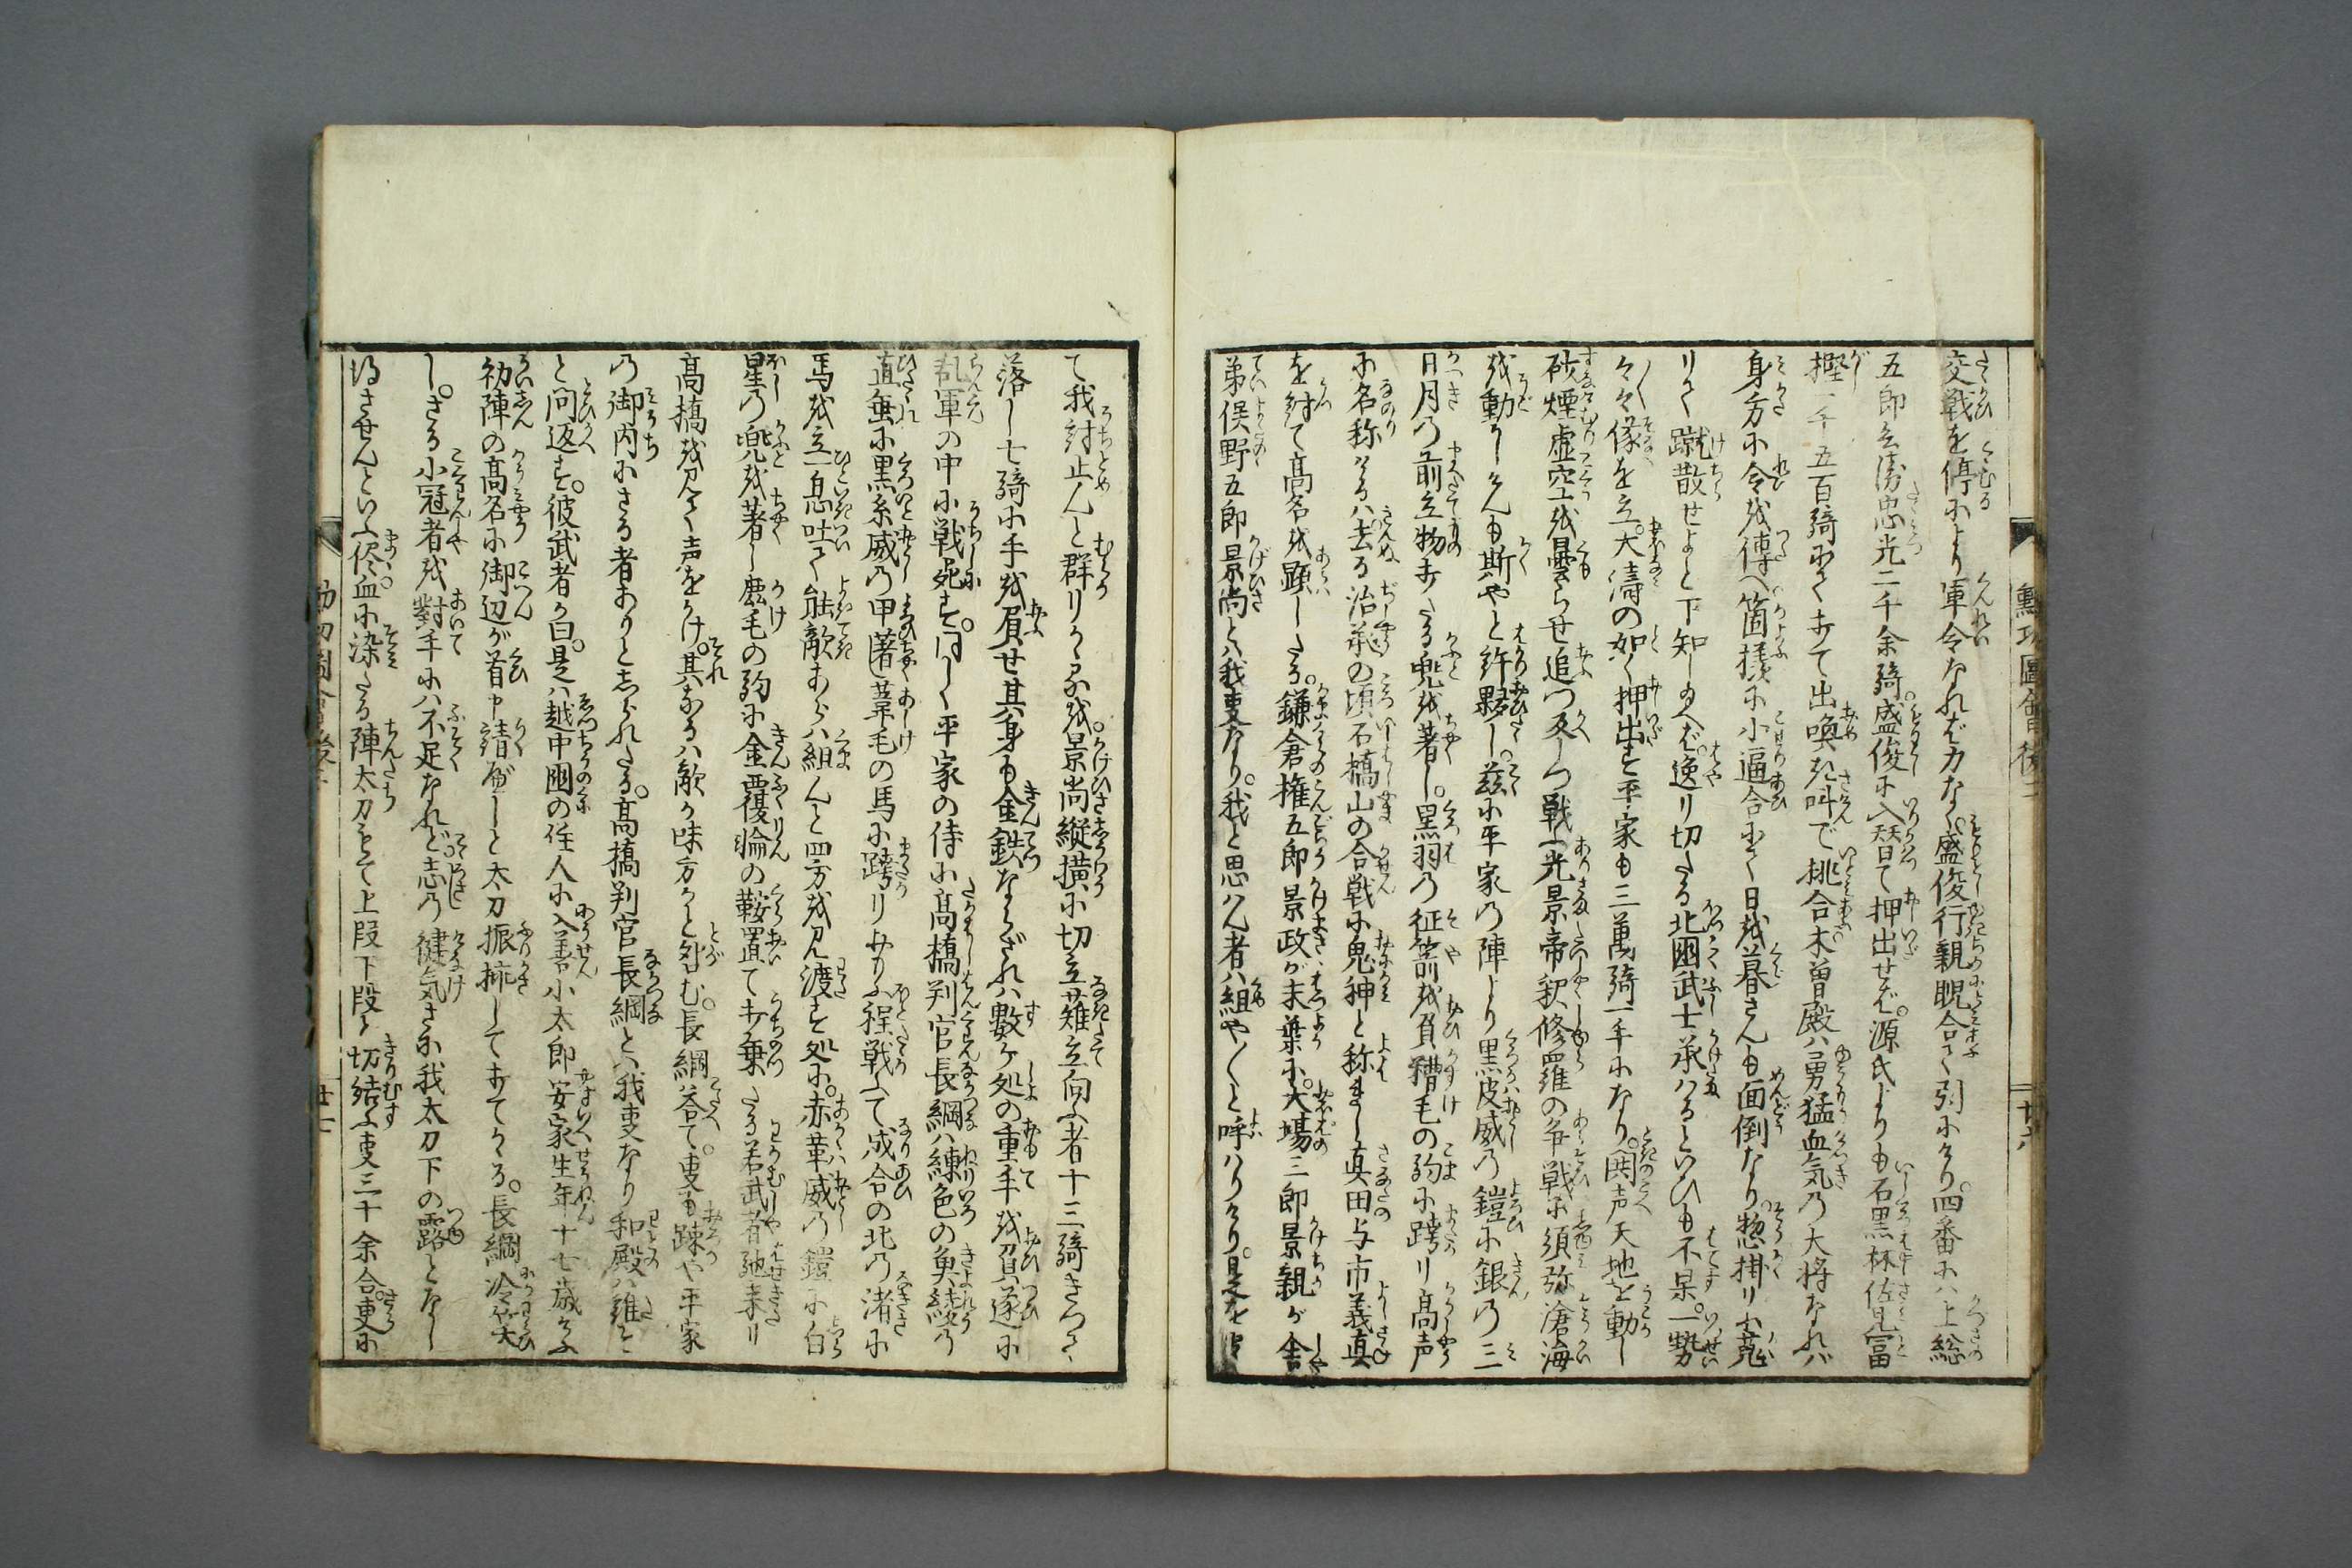 交戦を停により軍令なれば力なく盛俊行親睨合て引にけり。四番には上総
五郎兵衛忠光二千余騎。盛俊に入替て押出せば。源氏よりも石黒林佐見富
樫一千五百騎にて打て出喚き叫で挑合。木曽殿は勇猛血気の大将なれば
身方に令を伝へ箇様に小逼合にて日を暮さんも面倒なり惣掛りに
りて蹴散せよと下知し給へば。逸り切たる北国武士承はるといひも不果。一勢
々々備を立。大濤の如く押出す平家も三萬騎一手になり。鬨声天地を動し
砂煙虚空を曇らせ追つ返しつ戦ふ光景帝釈修羅の争戦に須弥滄海
を動かしけんも斯やと許夥し。茲に平家の陣より黒皮威の鎧に銀の三
日月の前立物打たる兜を著し。黒羽の征箭を負糟毛の駒に跨り高声
に名称けるは去る治承の頃石橋山の合戦に鬼神と称れし真田与市義真
を討て高名を顕したる。鎌倉権五郎景政が末葉に。大場三郎景親が舎
弟俣野五郎景尚とは我事なり。我と思はん者は組や〳〵と呼はりけり。是を
て我討止んと群りかゝるを。景尚縦横に切立薙立向ふ者十三騎きつて
落し七騎に手を負せ其身も金鉄ならざれは数ケ処の重手を負遂に
乱軍の中に戦死す。同しく平家の侍に高橋判官長綱は練色の魚綾の
直垂に黒糸威の甲著葦毛の馬に跨り
程戦ふて成合の北の渚に
馬を立一息吐て能敵あらは組んと四方を見渡す処に。赤革威の鎧に白
星の兜を著し鹿毛の駒に金覆輪の鞍置て打乗たる若武者馳来り
高橋を見て声をかけ。其なるは敵か味方かと咎む。長綱答て。事も疎や平家
の御内にさる者ありとしられたる。高橋判官長綱とは我事なり和殿は誰そ
と問返す。彼武者か曰。是は越中国の住人に入善小太郎安家生年十七歳
初陣の高名に御辺が首申請べしと太刀振揚して打てかゝる。長綱冷笑
し。さる小冠者を対手には不足なれど志の健気さに我太刀下の露となし
得させんといふ侭。血に染たる陣太刀もて上段下段と切結ふ事三十余合。更に